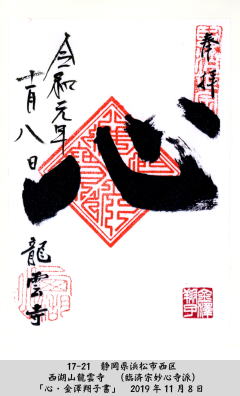 奉拝
心
令和元年
十一月八日
龍雲寺
金澤
翔子
17-21 静岡県浜松市西区
西湖山龍雲寺 (臨済宗妙心寺派)
「心・金澤翔子書」 2019年11月8日